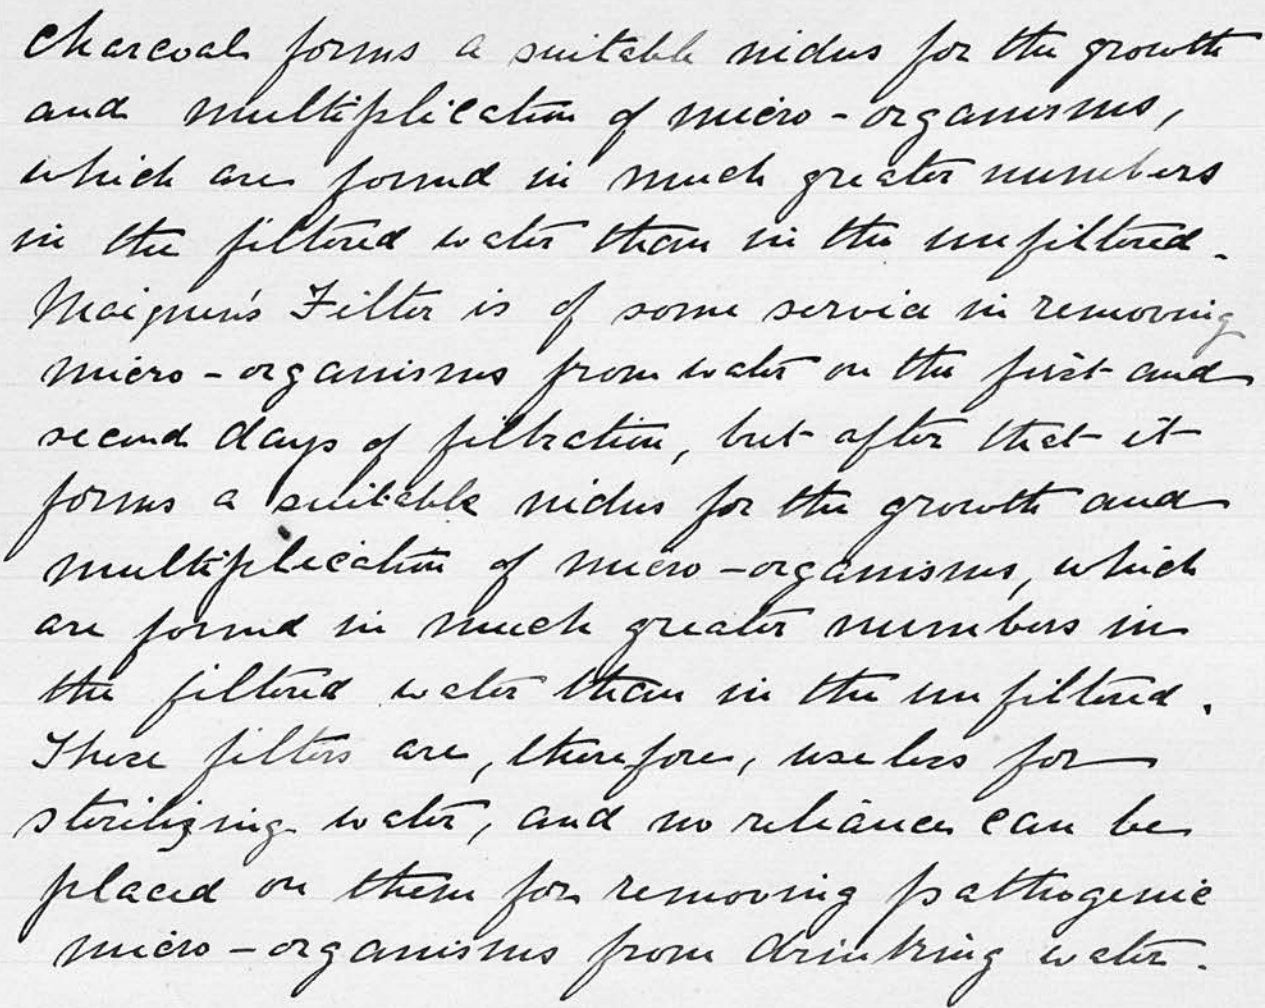 charcoal forms a suitable nidus for the growth
and multiplication of micro-organisms,
which are found in much greater numbers
in the filtered water than in the unfiltered.
Maignen's Filter is of some service in removing
micro-organisms from water on the first and
second days of filtration, but after that it
forms a suitable nidus for the growth and
multiplication of micro-organisms, which
are found in much greater numbers in
the filtered water than in the unfiltered.
These filters are, therefore, useless for
sterilizing water, and no reliance can be
placed on them for removing pathogenic
micro-organisms from drinking water.